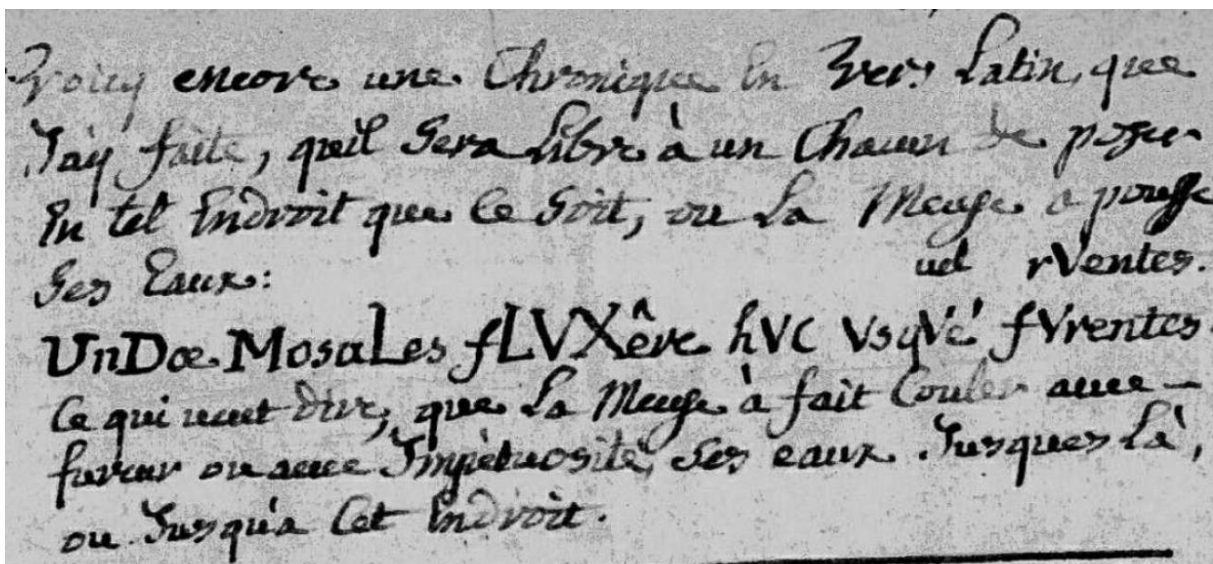 Voicy encore une Chronique En Vers Latin, que
J'ay faite, qu'il Sera Libre à un Chacun de poser
En tel Endroit que Ce Soit, ou La Meuse a pousse
Ses Eaux:
vel rVentes.
UnDæ MosaLes fLVXêre hVC VsqVé fVrentes.
Ce qui veut dire, que La Meuse à fait Couler avec
fureur ou avec Impètuosité, Ses eaux Jusques Là,
ou Jusqu'a Cet Endroit.